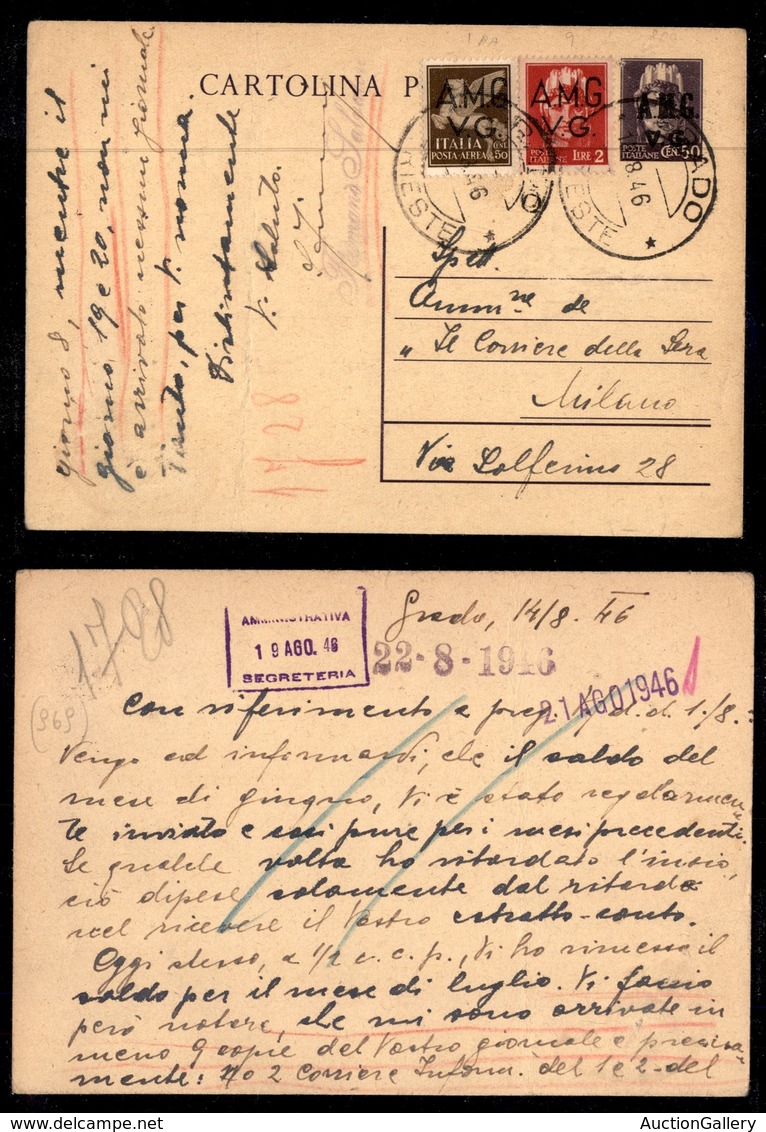 CARTOLINA P
A.M.G.
V.G.
ITALIA
POSTA-AEREA
CENT.
50
A.M.G.
V.G.
POSTE
ITALIANE
LIRE 2
A.M.G.
V.G.
POSTE
ITALIANE
CEN. 50
TRIESTE
8 46
GRADO
TRIESTE
8 46
Spett.
Amm.ne de
„ Il Corriere della Sera
Milano
Via Solferino 28
giorno 8, mentre il
giorno 19 e 20, non mi
è arrivato nessun giornale.
Tanto, per V. norma.
Distintamente
V. Saluto.
17/28
17-28
(969)
AMMINISTRATIVA
19 AGO. 46
SEGRETERIA
Grado, 14/8. 46
22-8-1946
21 AGO 1946
Con riferimento a preg. V. d.d. 1./8.:
Vengo ad informarvi, che il saldo del
mese di giugno, Vi è stato regolarmen=
te inviato e così pure per i mesi precedenti.
Se qualche volta ho ritardato l'invio,
ciò dipese solamente dal ritardo
nel ricevere il Vostro estratto-conto.
Oggi stesso, a 1/2 c.c.p., Vi ho rimesso il
saldo per il mese di luglio. Vi faccio
però notare, che mi sono arrivate in
meno 9 copie del Vostro giornale e precisa=
mente: No 2 Corriere Inform. del 1 e 2 - del
AuctionGallery